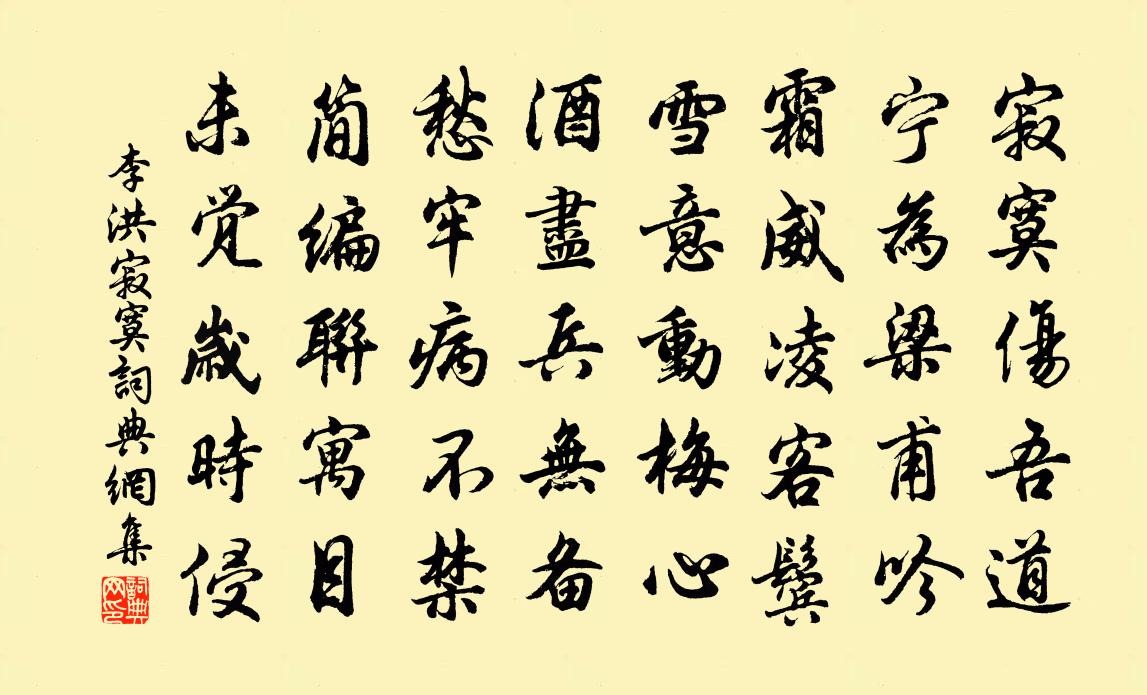 寂寞傷吾道
宁為梁甫吟
霜威凌客鬢
雪意動梅心
酒盡兵無备
愁牢病不禁
简编聯寓目
未觉歲時侵
李洪寂寞詞典網集
詞典网印